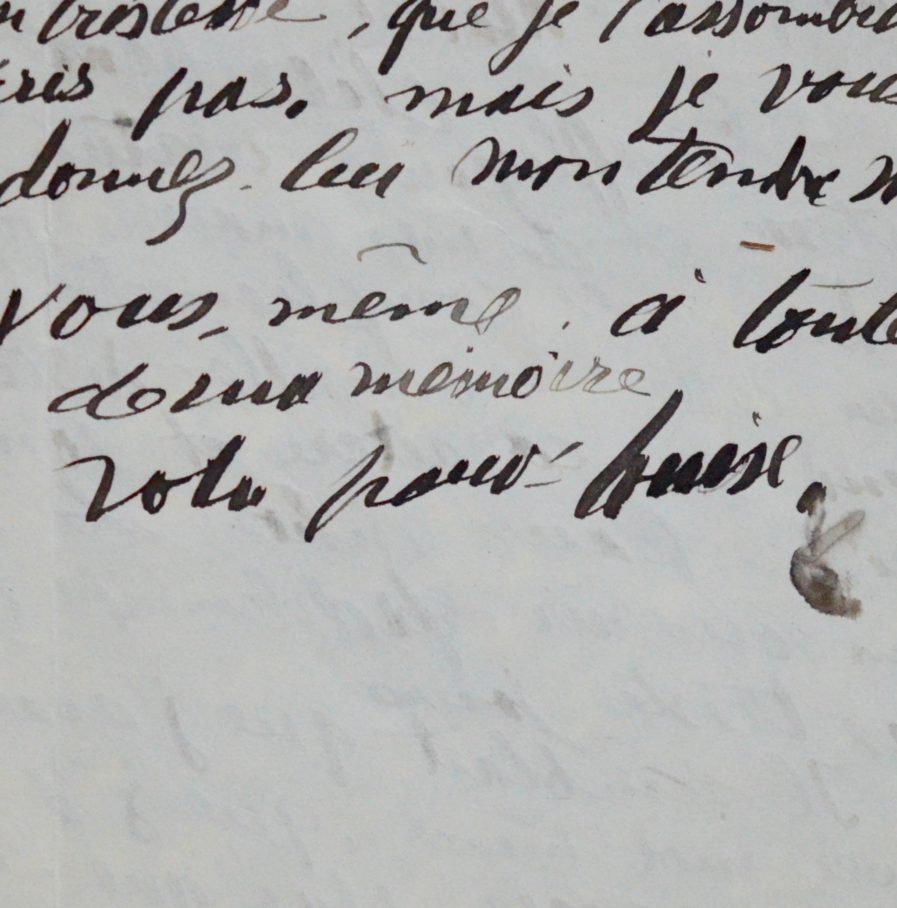 tristesse, que je l'assombri
ris pas. mais je vous
donnez lui mon tendre
vous, même. à toute
de ma mémoire
votre pauvre Louise.